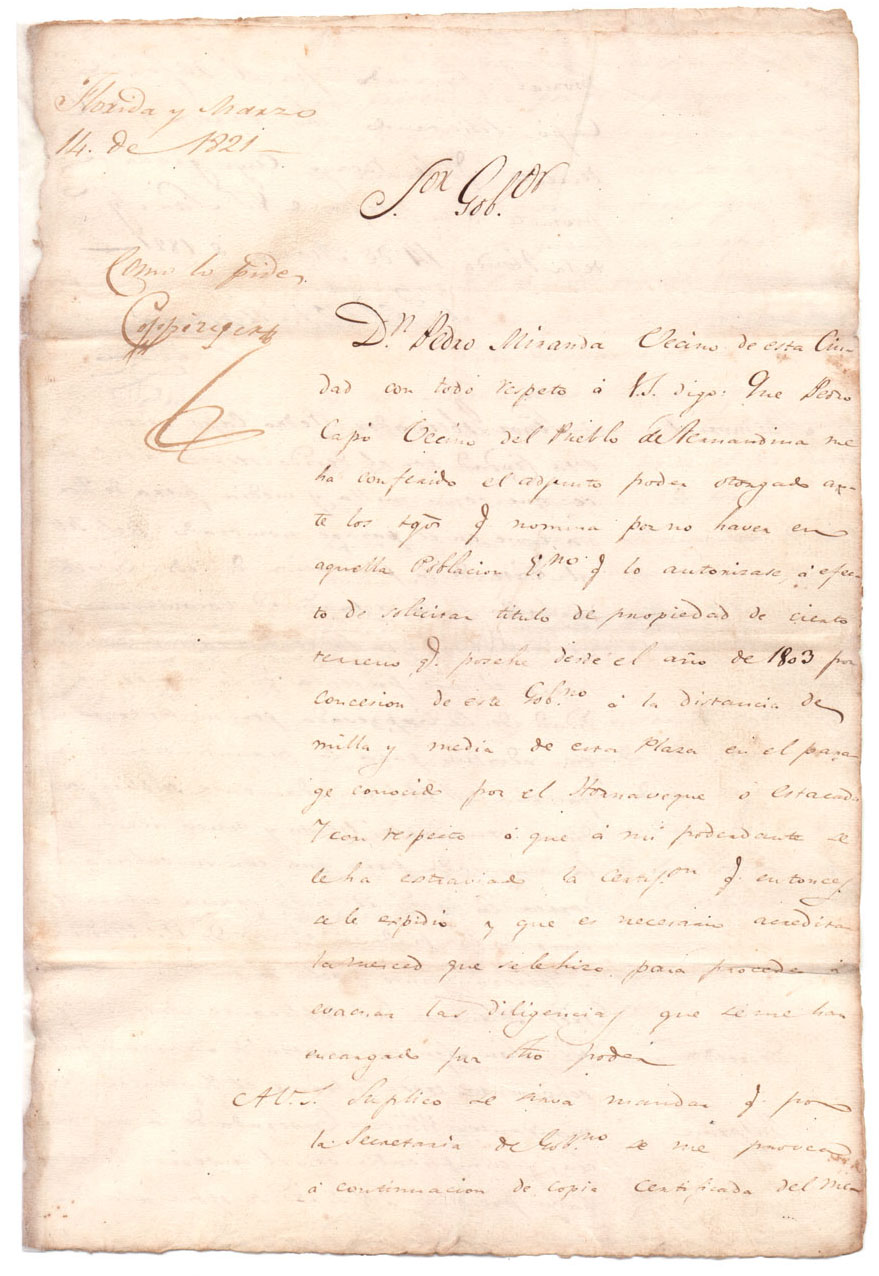 Florida y Marzo
14. de 1821
Sor Gobor
Como lo pide.
Coppinger
Dn Pedro Miranda Vecino de esta Ciu-
dad con todo respeto á V.S. digo: Que Pedro
Capó Vecino del Pueblo de Fernandina me
ha conferido el adjunto poder otorgado an-
te los tgos q. nomina por no haver en
aquella Poblacion Esno q. lo autorizase, á efec-
to de solicitar titulo de propiedad de cierto
terreno q. poséhe desde el año de 1803 por
concesion de este Gobno á la distancia de
milla y media de esta Plaza en el para-
ge conocido por el Hornaveque ó estacada
Y con respecto á que á mi poderdante se
le ha estraviado la certifon q. entonces
se le expidio y que es necesario acreditar
la merced que se le hizo para proceder á
evacuar las diligencias que se me han
encargado por dho poder
A V.S. Suplico se sirva mandar q. por
la Secretaria de Gobno se me provea
á continuacion de copia certificada del Me-